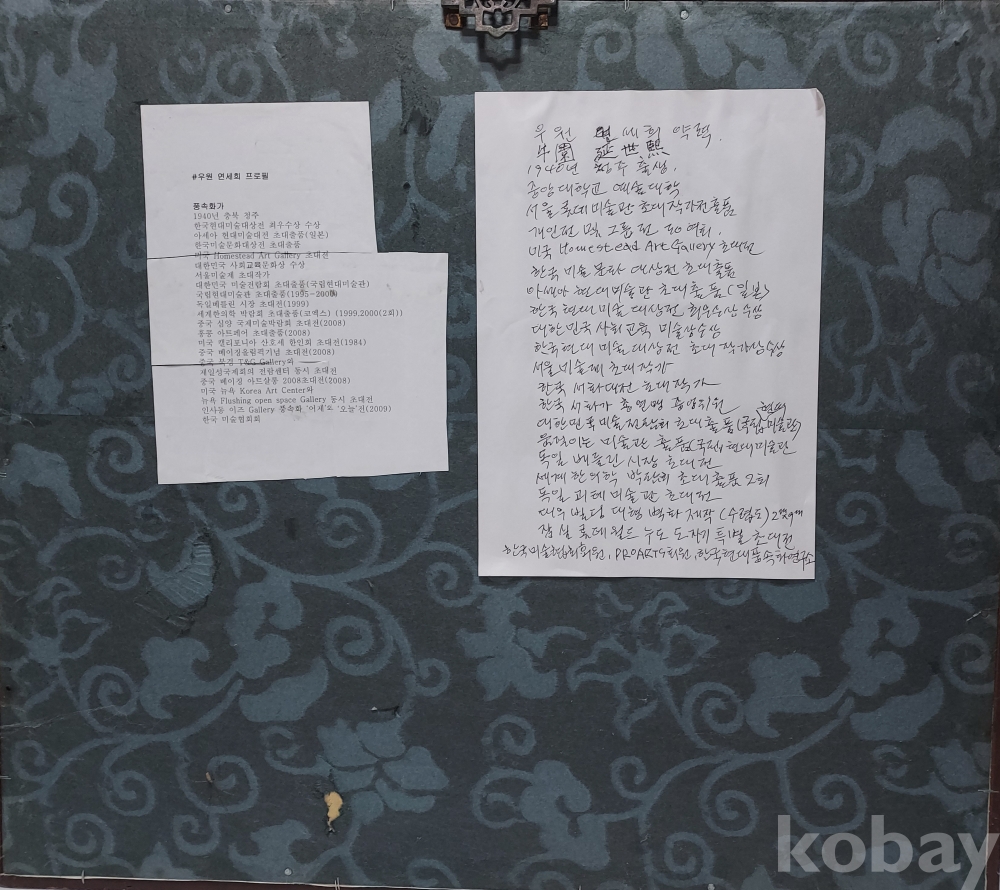 #우원 연세희 프로필
풍속화가
1940년 충북 청주
한국현대미술대상전 최우수상 수상
아세아 현대미술대전 초대출품(일본)
한국미술문화대상전 초대출품
미국 Homestead Art Gallery 초대전
대한민국 사회교육문화상 수상
서울미술제 초대작가
대한민국 미술전람회 초대출품(국립현대미술관)
국립현대미술관 초대출품(1995-2000)
독일베를린 시장 초대전(1999)
세계한의학 박람회 초대출품(코엑스) (1999,2000(2회))
중국 심양 국제미술박람회 초대전(2008)
홍콩 아트페어 초대출품(2008)
미국 캘리포니아 산호세 한인회 초대전(1984)
중국 베이징올림픽기념 초대전(2008)
중국 북경 T&G Gallery와
재일성국제회의 전람센터 동시 초대전
중국 베이징 아트살롱 2008초대전(2008)
미국 뉴욕 Korea Art Center와
뉴욕 Flushing open space Gallery 동시 초대전
인사동 이즈 Gallery 풍속화 '어제'와 '오늘'전(2009)
한국 미술협회회
우원 연세희 약력.
牛園 延世熙
1940년 청주 출생.
중앙대학교 예술대학
서울 롯데미술관 초대작가전 출품
개인전 및 그룹전 40여회.
미국 Homestead Art Gallery 초대전
한국 미술문화 대상전 초대출품
아세아 현대미술관 초대출품 (일본)
한국현대미술 대상전 최우수상 수상
대한민국사회교육 미술상수상
한국현대미술대상전 초대작가상수상
서울미술제 초대작가
한국 서화대전 초대작가
한국 서화가 총연맹 중앙위원
대한민국미술전람회 초대출품(국립현대미술관)
움직이는 미술관 출품(국전, 현대미술관
독일 베를린 시장 초대전
세계한의학 박람회 초대출품 2회
독일 괴테미술관 초대전
대우빌딩 대형 벽화 제작 (수렵도)
잠실 롯데월드 누드 도자기 특별 초대전
한국미술협회회원, PROARTS회원, 한국현대풍속화연구소
kobay